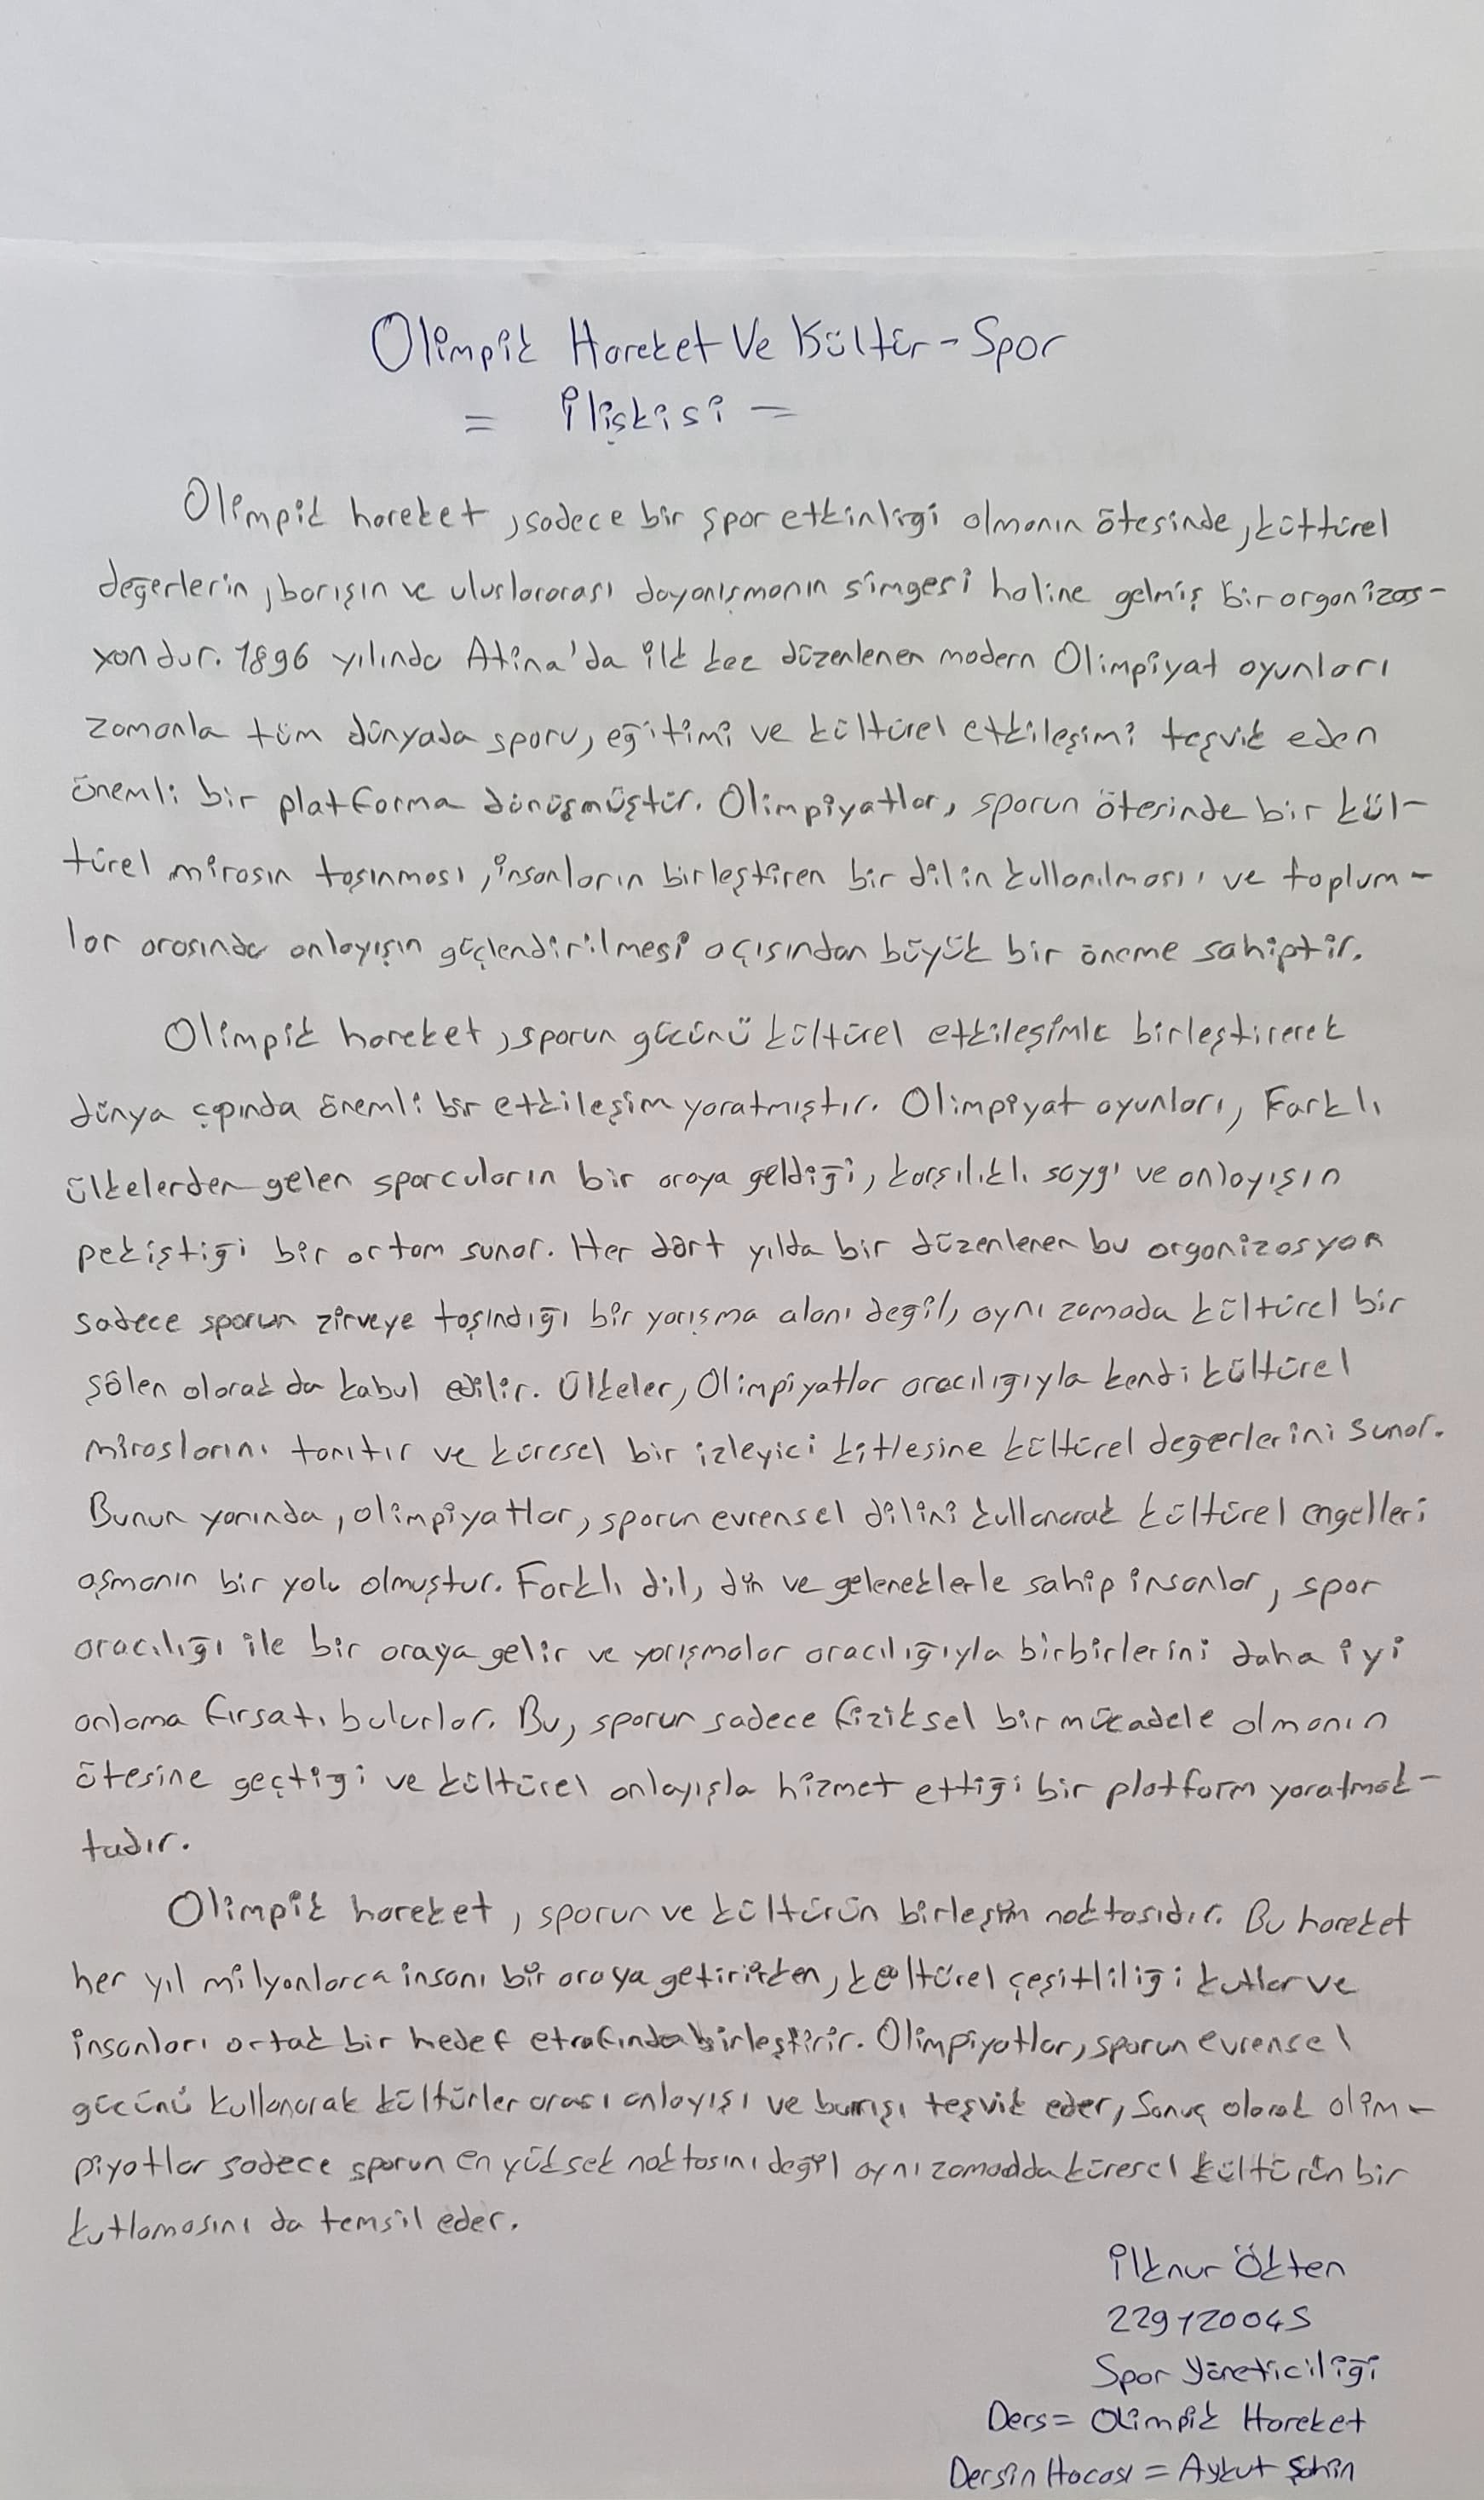 Olimpik Hareket Ve Kültür - Spor
= İlişkisi =
Olimpik hareket, sadece bir spor etkinliği olmanın ötesinde, kültürel
değerlerin, barışın ve uluslararası dayanışmanın simgesi haline gelmiş bir organizas-
yondur. 1896 yılında Atina'da ilk kez düzenlenen modern Olimpiyat oyunları
zamanla tüm dünyada sporu, eğitimi ve kültürel etkileşimi teşvik eden
önemli bir platforma dönüşmüştür. Olimpiyatlar, sporun ötesinde bir kül-
türel mirasın taşınması, insanların birleştiren bir dilin kullanılması, ve toplum-
lar arasında anlayışın güçlendirilmesi açısından büyük bir öneme sahiptir.
Olimpik hareket, sporun gücünü kültürel etkileşimle birleştirerek
dünya çapında önemli bir etkileşim yaratmıştır. Olimpiyat oyunları, Farklı
ülkelerden gelen sporcuların bir araya geldiği, karşılıklı saygı ve anlayışın
pekiştiği bir ortam sunar. Her dört yılda bir düzenlenen bu organizasyon
sadece sporun zirveye taşındığı bir yarışma alanı değil, aynı zamada kültürel bir
şölen olarak da kabul edilir. Ülkeler, Olimpiyatlar aracılığıyla kendi kültürel
miraslarını tanıtır ve küresel bir izleyici kitlesine kültürel değerlerini sunar.
Bunun yanında, olimpiyatlar, sporun evrensel dilini kullanarak kültürel engelleri
aşmanın bir yolu olmuştur. Farklı dil, din ve geleneklerle sahip insanlar, spor
aracılığı ile bir araya gelir ve yarışmalar aracılığıyla birbirlerini daha iyi
anlama fırsatı bulurlar. Bu, sporun sadece fiziksel bir mücadele olmanın
ötesine geçtiği ve kültürel anlayışla hizmet ettiği bir platform yaratmak-
tadır.
Olimpik hareket, sporun ve kültürün birleşim noktasıdır. Bu hareket
her yıl milyonlarca insanı bir araya getirirken, kültürel çeşitliliği kutlar ve
insanları ortak bir hedef etrafında birleştirir. Olimpiyatlar, sporun evrensel
gücünü kullanarak kültürler arası anlayışı ve barışı teşvik eder, Sonuç olarak olim-
piyatlar sadece sporun en yüksek noktasını değil aynı zamadda küresel kültürün bir
kutlamasını da temsil eder.
İlknur Ökten
229120045
Spor Yöneticiliği
Ders = Olimpik Hareket
Dersin Hocası = Aykut Şahin